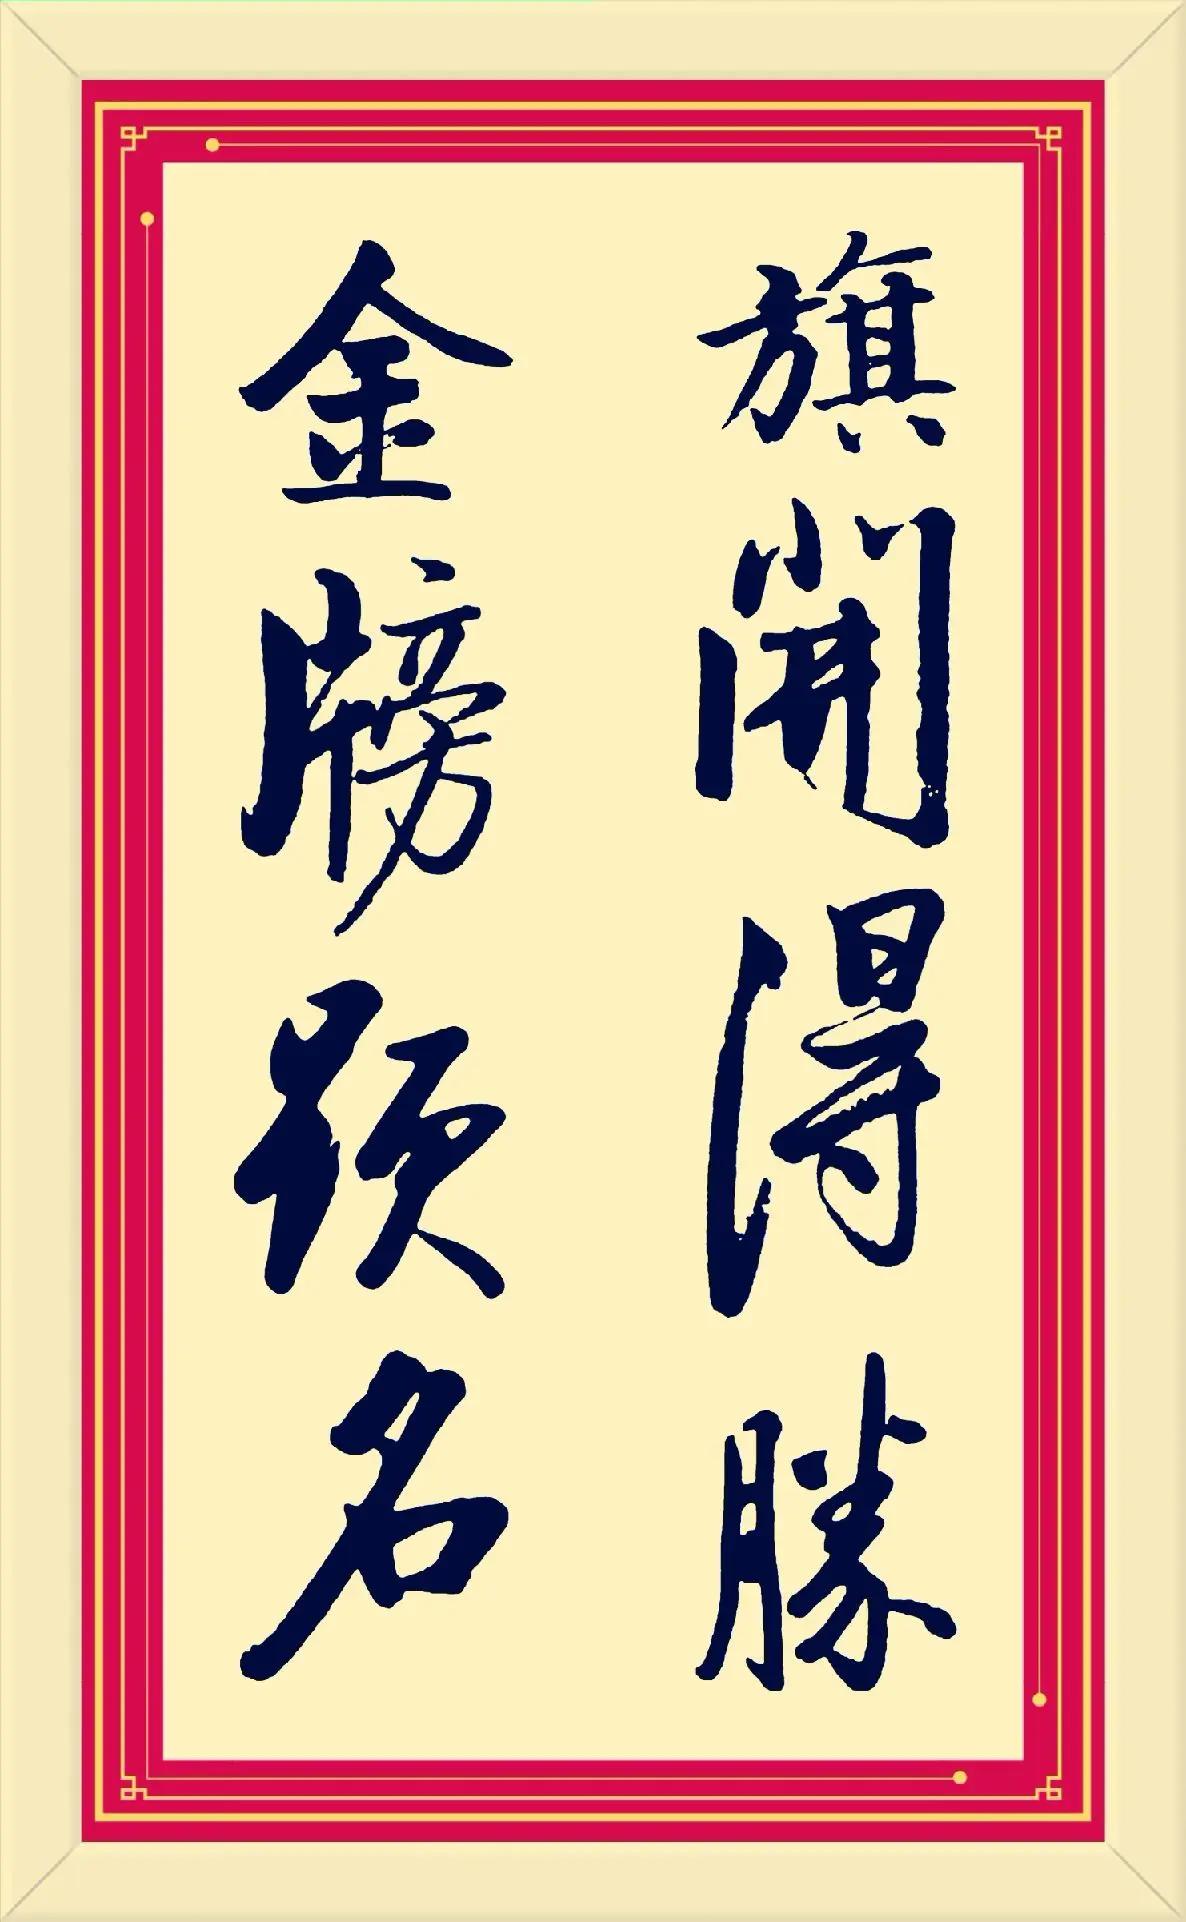 旗開得勝
金牓題名